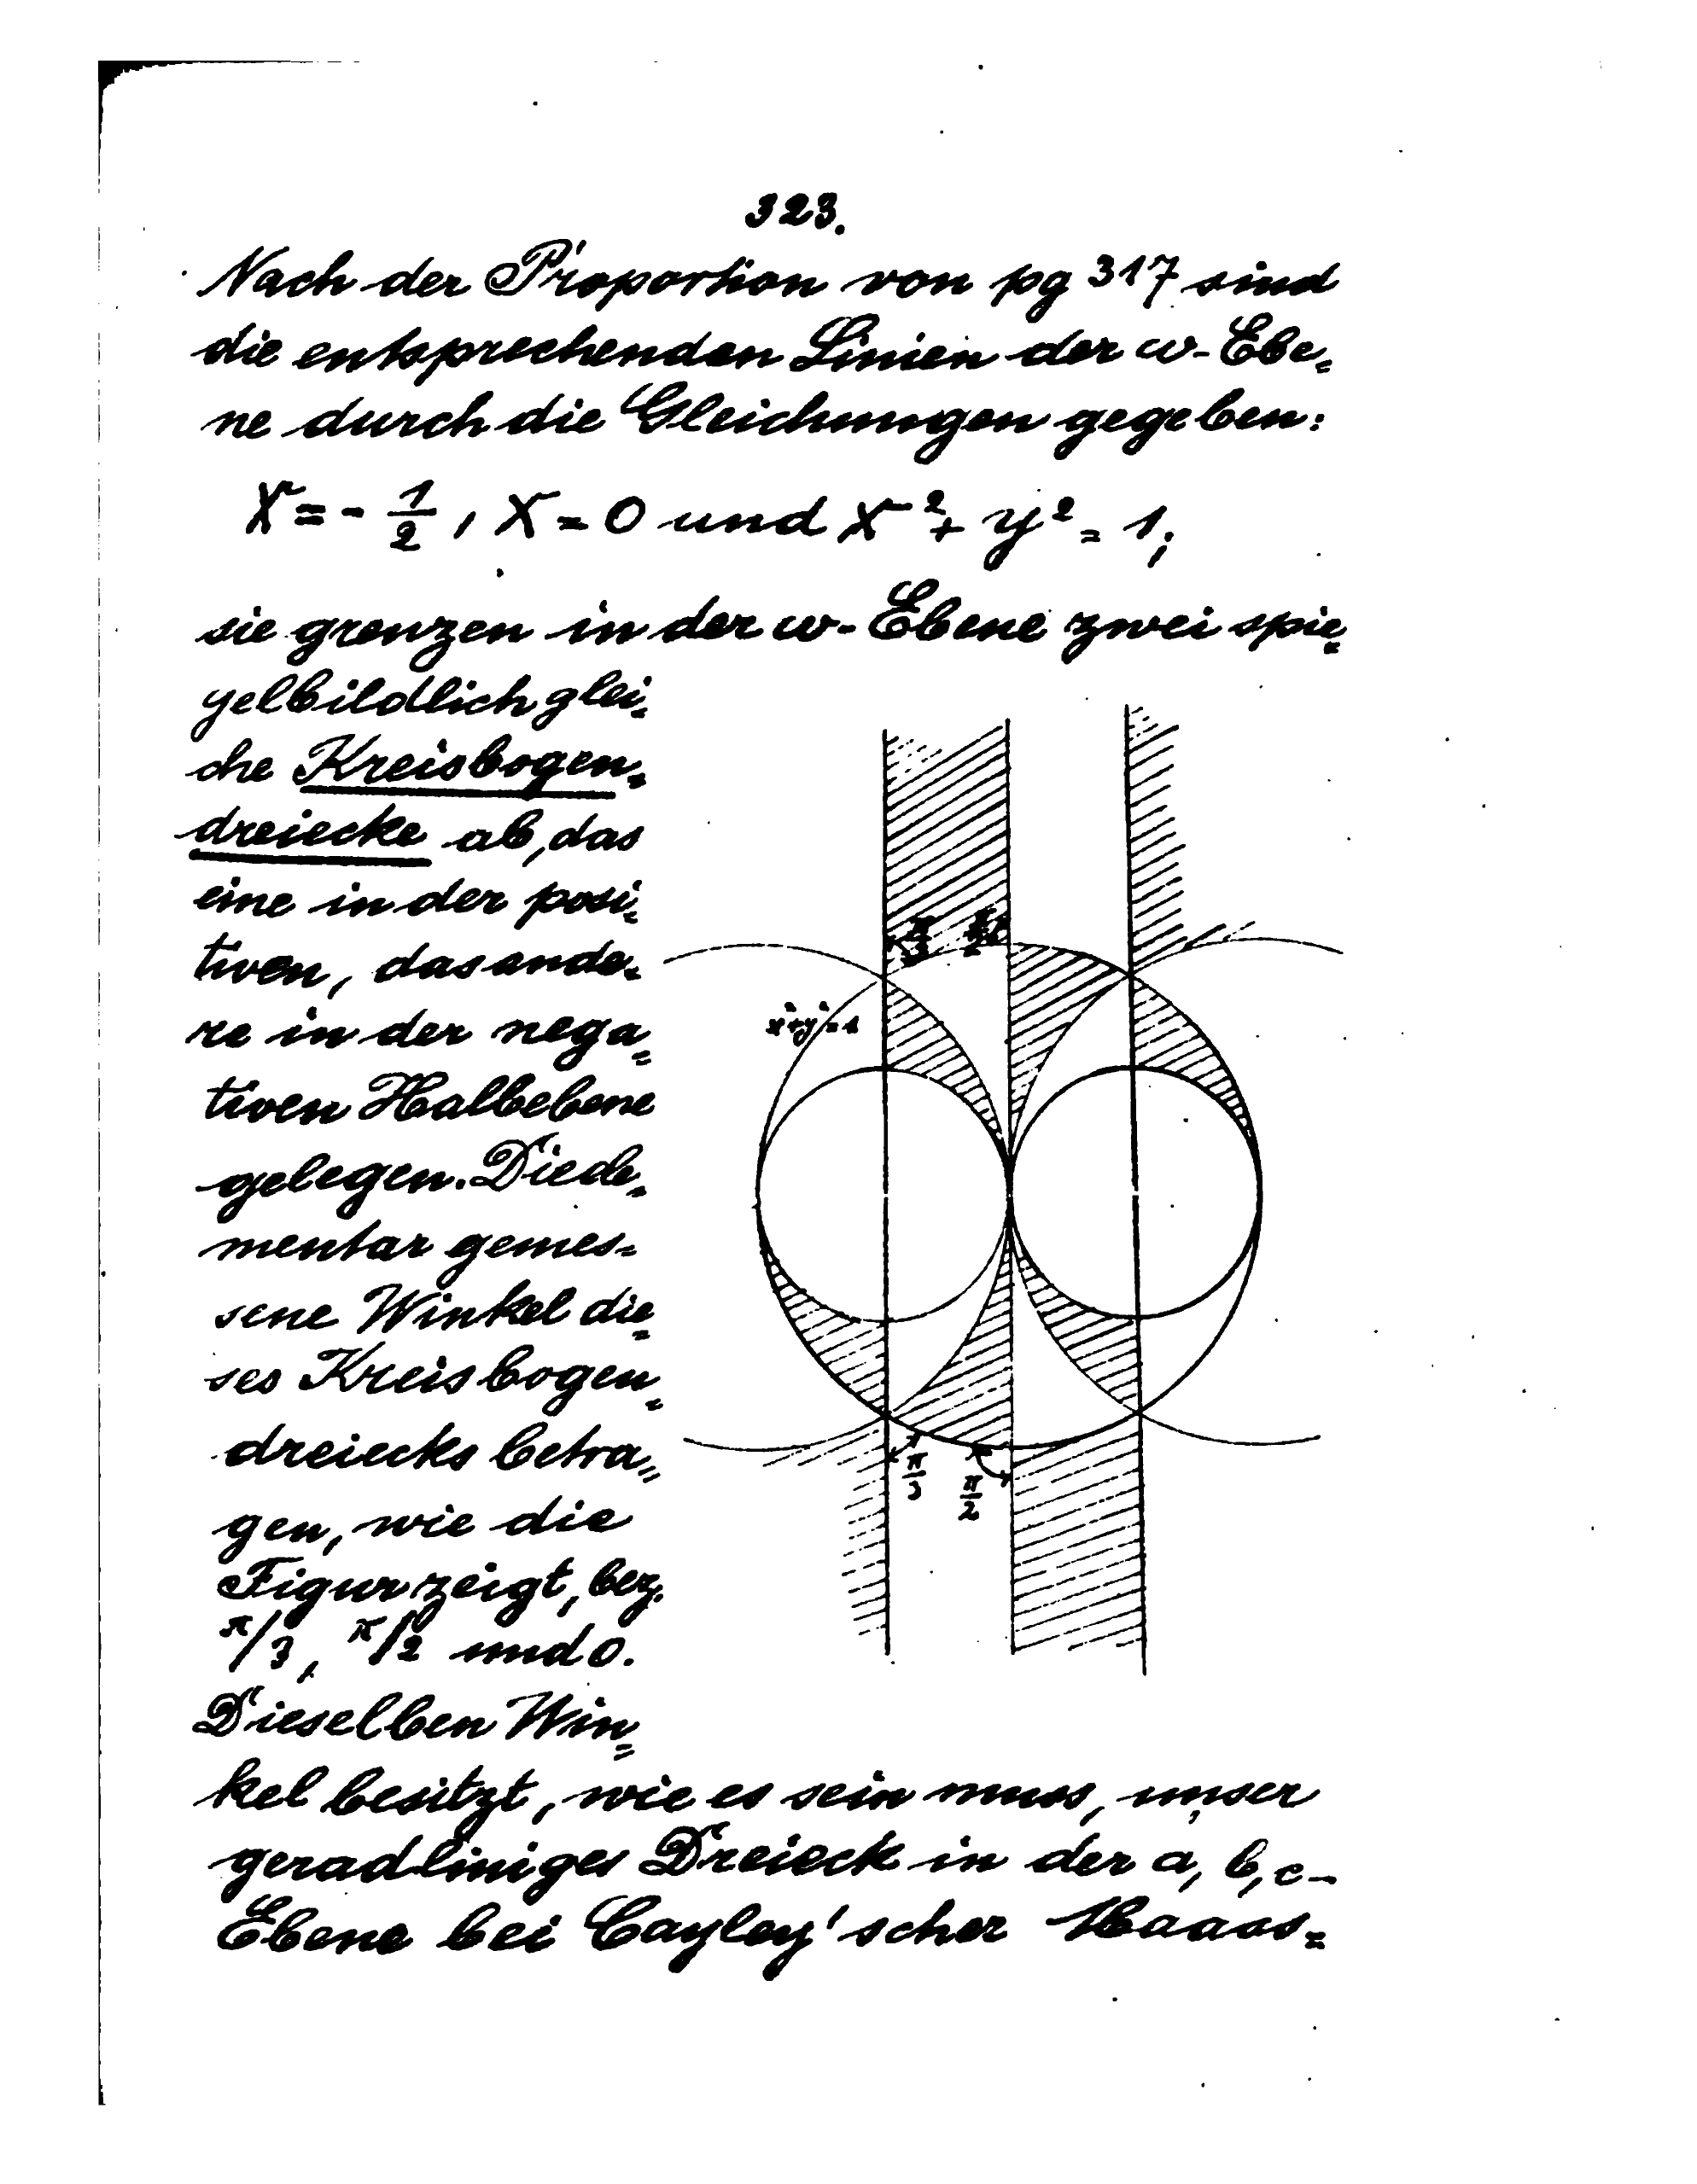 323.
Nach der Proportion von pg 317 sind
die entsprechenden Linien der w-Ebe=
ne durch die Gleichungen gegeben:
X = - 1/2, X = 0 und X² + y² = 1;
sie grenzen in der w-Ebene zwei spie=
gelbildlich glei=
che Kreisbogen=
dreiecke ab, das
eine in der posi=
tiven, das ande=
re in der nega=
tiven Halbebene
gelegen. Die ele=
mentar gemes=
sene Winkel die=
ses Kreisbogen=
dreiecks betra=
gen, wie die
Figur zeigt, bez.
π/3, π/2 und 0.
Dieselben Win=
kel besitzt, wie es sein muss, unser
geradliniges Dreieck in der a, b, c-
Ebene bei Cayley'scher Maass=
π/3 π/2
x²+y²=1
π/3
π/2